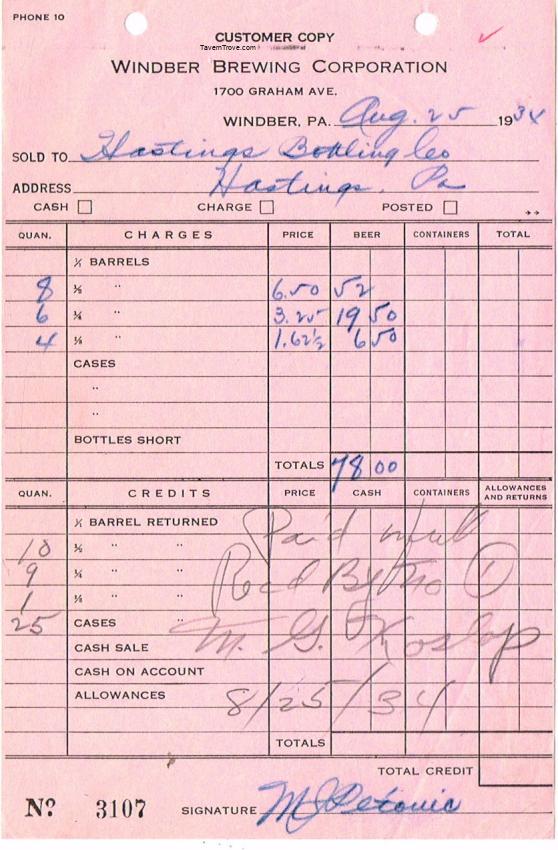 PHONE 10
CUSTOMER COPY
TavernTrove.com
WINDBER BREWING CORPORATION
1700 GRAHAM AVE.
WINDBER, PA. Aug. 25 1934
SOLD TO Hastings Bottling Co
ADDRESS Hastings. Pa
CASH CHARGE POSTED
QUAN. CHARGES PRICE BEER CONTAINERS TOTAL
1/1 BARRELS
8 1/2 " 6.50 52
6 1/4 " 3.25 19 50
4 1/8 " 1.62½ 6 50
CASES
"
"
BOTTLES SHORT
TOTALS 78 00
QUAN. CREDITS PRICE CASH CONTAINERS ALLOWANCES AND RETURNS
1/1 BARREL RETURNED Paid
10 1/2 " "
9 1/4 " " Recd By
1 1/8 " "
25 CASES " M. G.
CASH SALE
CASH ON ACCOUNT
ALLOWANCES 8/25/34
TOTALS
TOTAL CREDIT
Nº 3107 SIGNATURE